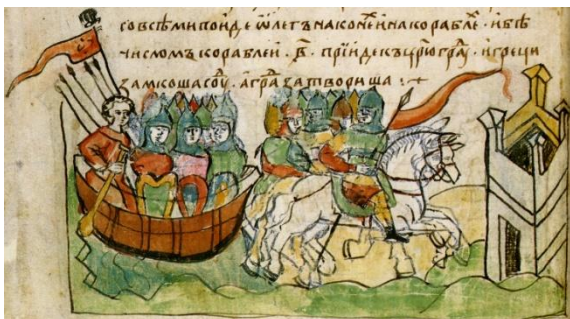 со всѣми поиде ѡлегъ на коне и на корабле · и бѣ
числомъ кораблеи · в҃ · прїиде к црю гра · и греци
замкоша соу · а гра затвориша :+